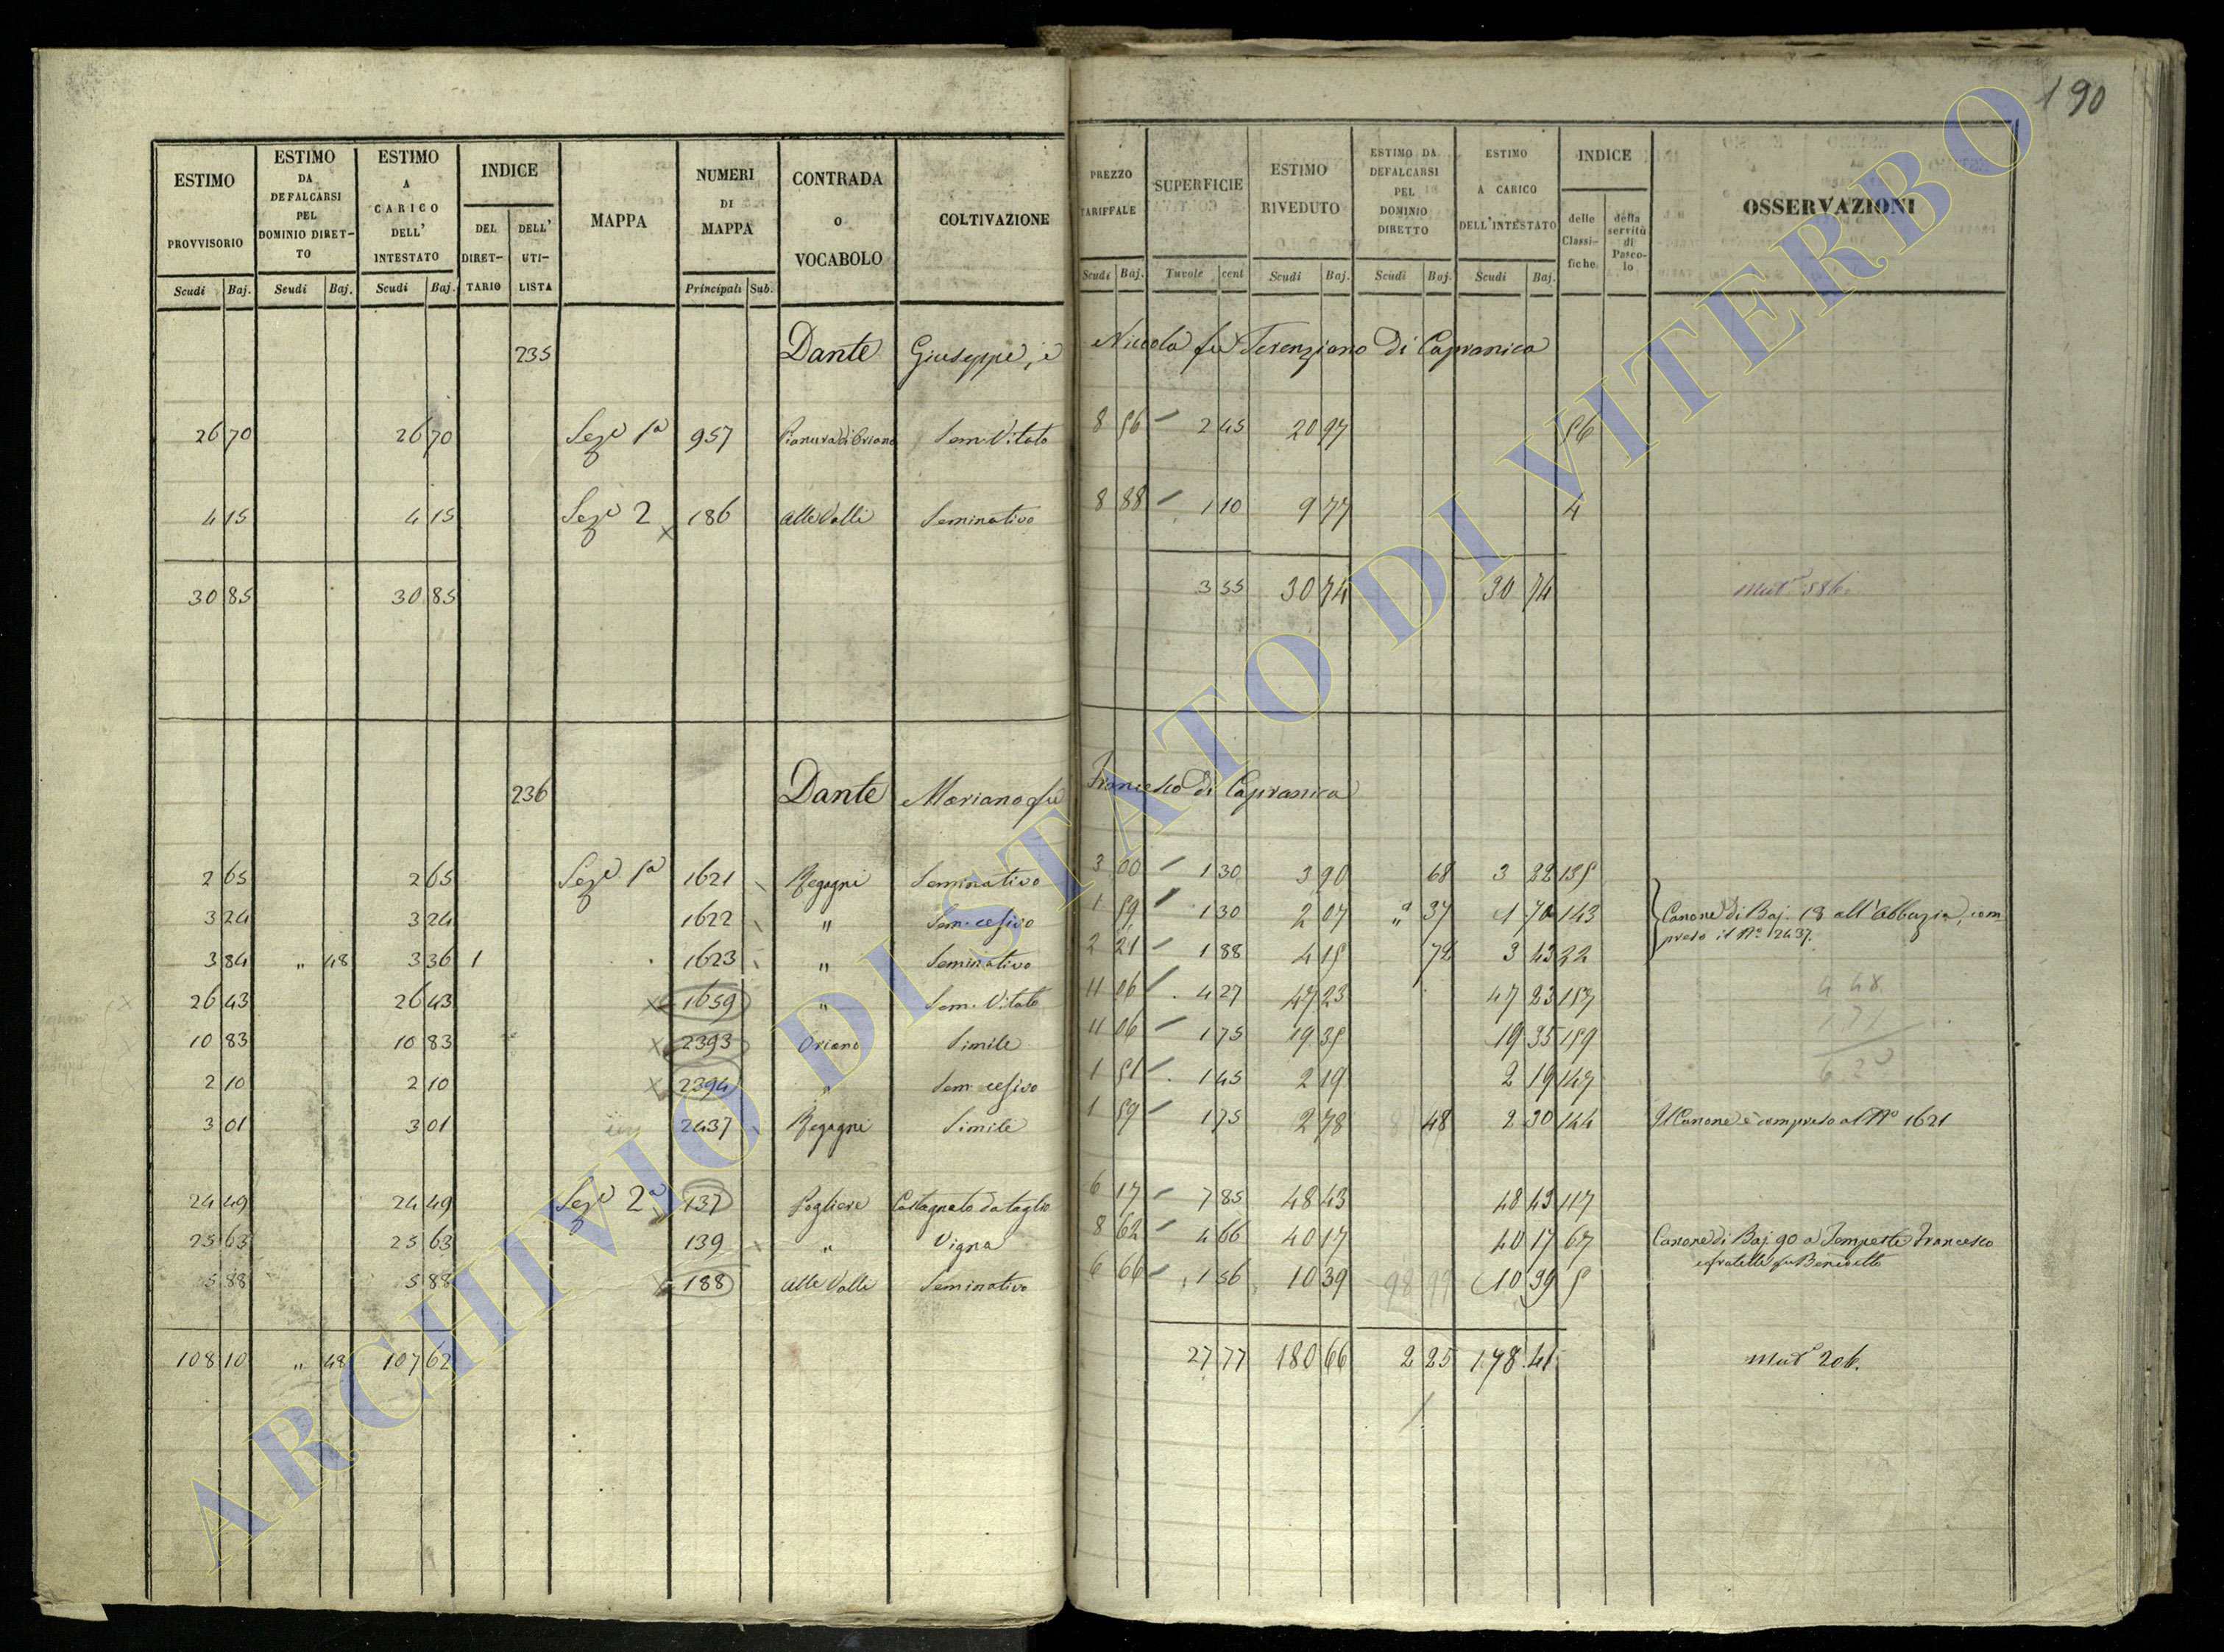 190
ESTIMO PROVVISORIO Scudi Baj. ESTIMO DA DEFALCARSI PEL DOMINIO DIRETTO Scudi Baj. ESTIMO A CARICO DELL' INTESTATO Scudi Baj. INDICE DEL DIRETTARIO DELL' UTILISTA MAPPA NUMERI DI MAPPA Principali Sub. CONTRADA o VOCABOLO COLTIVAZIONE PREZZO TARIFFALE Scudi Baj. SUPERFICIE Tavole cent ESTIMO RIVEDUTO Scudi Baj. ESTIMO DA DEFALCARSI PEL DOMINIO DIRETTO Scudi Baj. ESTIMO A CARICO DELL'INTESTATO Scudi Baj. INDICE delle Classifiche della servitù di Pascolo OSSERVAZIONI
235 Dante Giuseppe, e Niccola fu Terenziano di Capranica
26 70 26 70 Seze 1a 957 Pianura di Oriano Sem. Vitato 8 56 2 45 20 97 56
4 15 4 15 Seze 2 186 alle Valli Seminativo 8 88 1 10 9 77 4
30 85 30 85 3 55 30 74 30 74
236 Dante Mariano fu Francesco di Capranica
2 65 2 65 Seze 1a 1621 Regagni Seminativo 3 00 1 30 3 90 68 3 22 135
3 24 3 24 1622 " Sem. cesivo 1 59 1 30 2 07 " 37 1 70 143 Canone di Baj. 18 all'Abbazia, com
preso il No 2437.
3 84 " 48 3 36 1 1623 " Seminativo 2 21 1 88 4 15 72 3 43 22
26 43 26 43 1659 " Sem. Vitato 11 06 4 27 47 23 47 23 157
10 83 10 83 2393 Oriano Simile 11 06 1 75 19 35 19 35 159
2 10 2 10 2394 " Sem. cesivo 1 51 1 45 2 19 2 19 147
3 01 3 01 2437 Regagni Simile 1 59 1 75 2 78 48 2 30 144 Il Canone è compreso al No 1621
24 49 24 49 Seze 2a 137 Pogliere Castagnato da taglio 6 17 7 85 48 43 48 43 117
25 63 25 63 139 " Vigna 8 62 4 66 40 17 40 17 67 Canone di Baj. 90 a Tempesta Francesco
e fratelli fu Benedetto
5 88 5 88 188 alle Valli Seminativo 6 66 1 56 10 39 10 39 5
108 10 " 48 107 62 27 77 180 66 2 25 178 41 Mut. 206.
ARCHIVIO DI STATO DI VITERBO